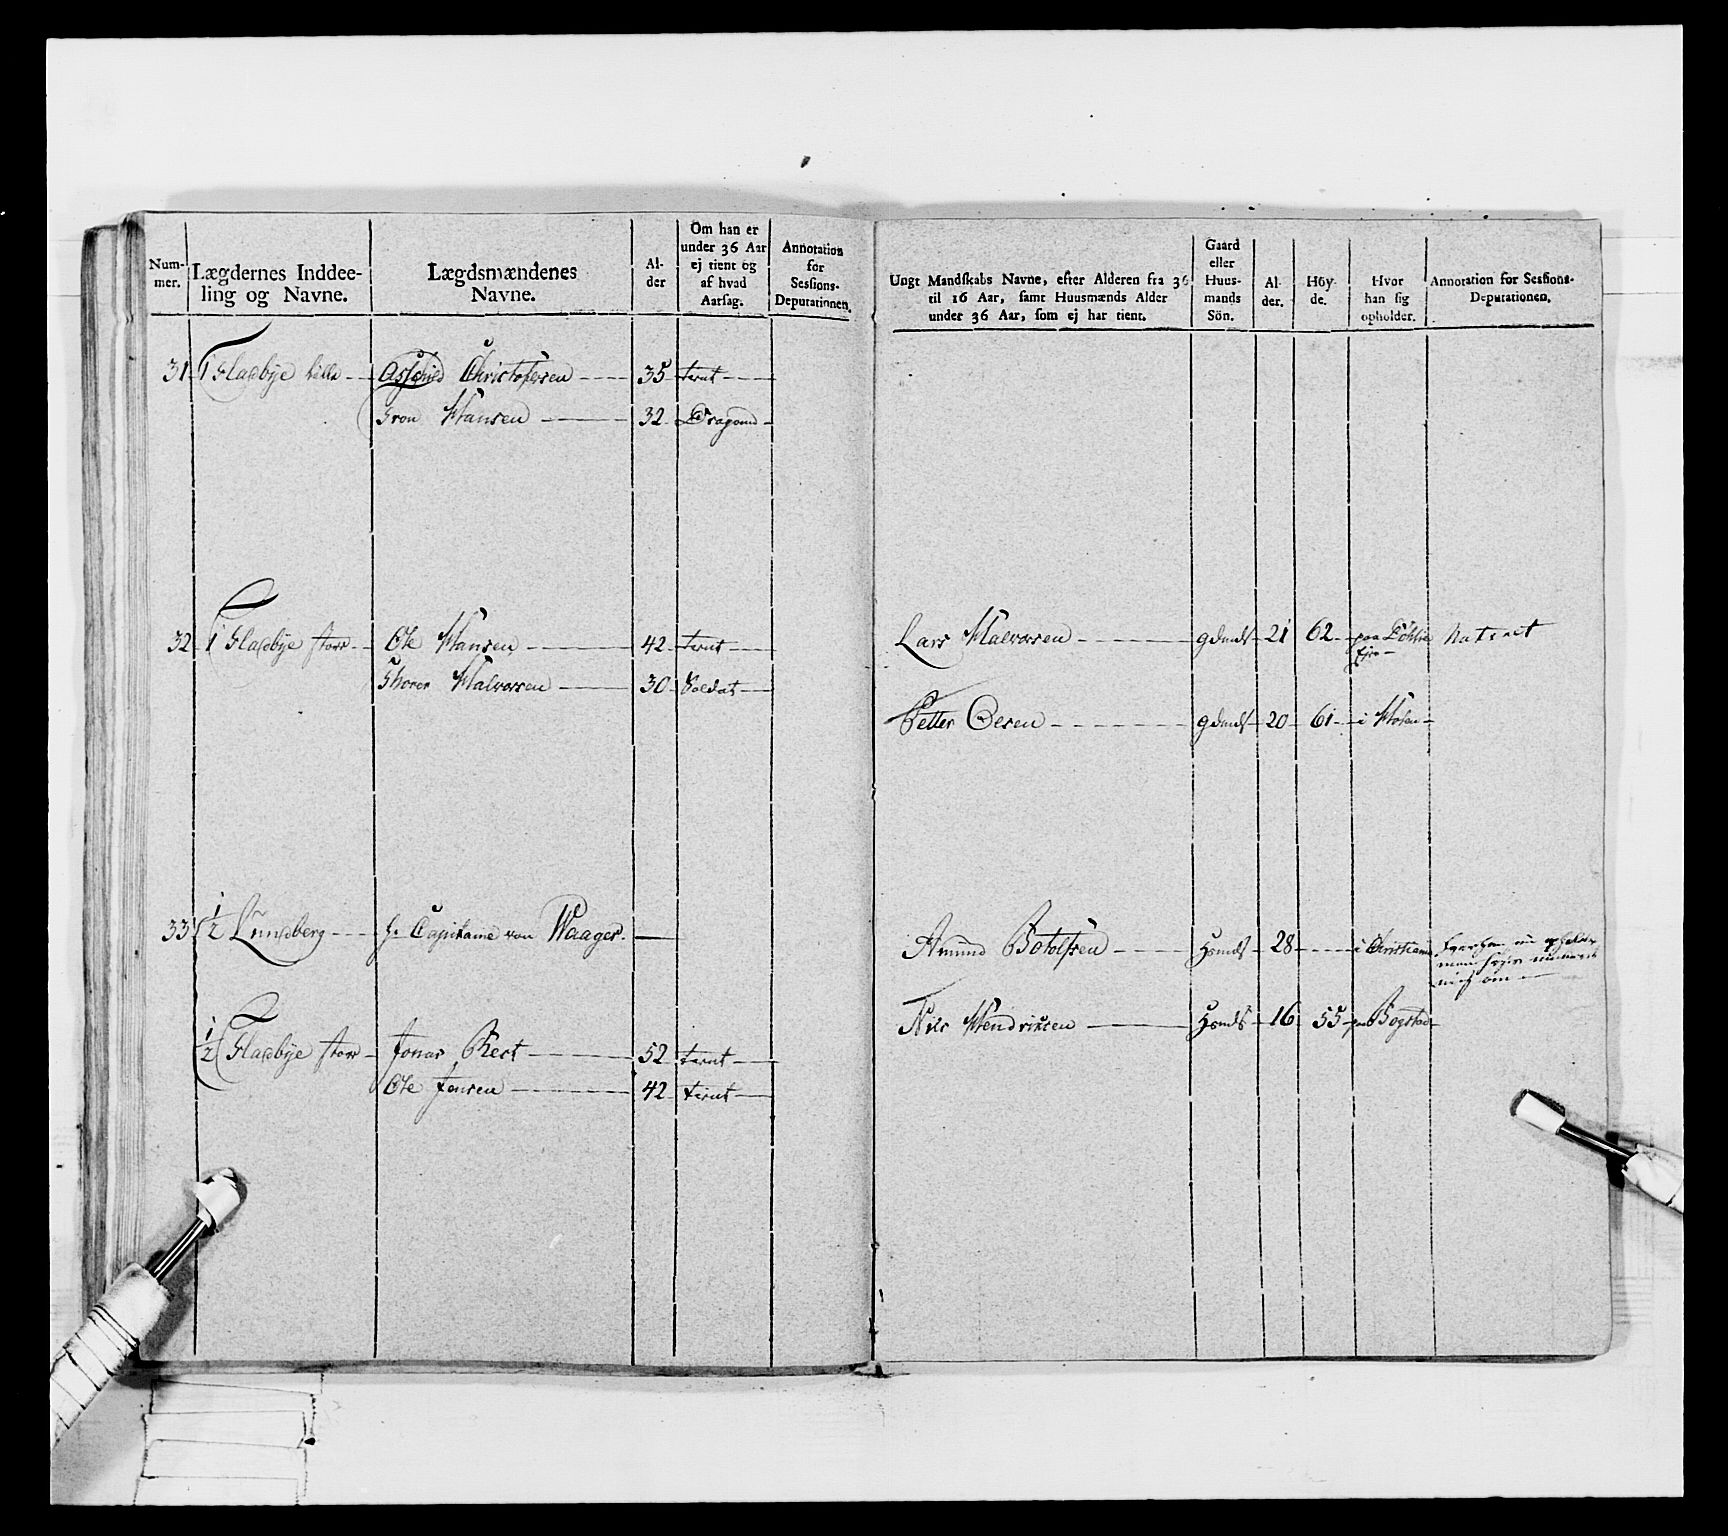 Num-
mer.
Lægdernes Inddee-
ling og Navne.
Lægdsmændenes
Navne.
Al-
der
Om han er
under 36 Aar
ej tient og
af hvad
Aarsag.
Annotation
for
Sessions-
Deputationen.
31 1 Fladbÿe lille Christofersen 35 tient
Hansen 32 Dragoun
32 1 Fladbÿe stor Ole Hansen 42 tient
Thorer Halvorsen 30 Soldat
33 1/2 Lundberg Hr Capitaine von Waager
1/2 Fladbÿe stor Jonas Bert 52 tient
Ole Jensen 42 tient
Ungt Mandskabs Navne, efter Alderen fra 36
til 16 Aar, samt Huusmænds Alder
under 36 Aar, som ej har tient.
Gaard
eller
Huus-
mands
Sön.
Al-
der.
Höy-
de.
Hvor
han sig
opholder.
Annotation for Sessions-
Deputationen.
Lars Halvorsen gdmds 21 62 paa
Petter Olesen gdmds 20 61 i
Amund Botolfsen Hsmds 28 i Christiania
Nils Hendriksen Hsmds 16 55 paa Bogstad